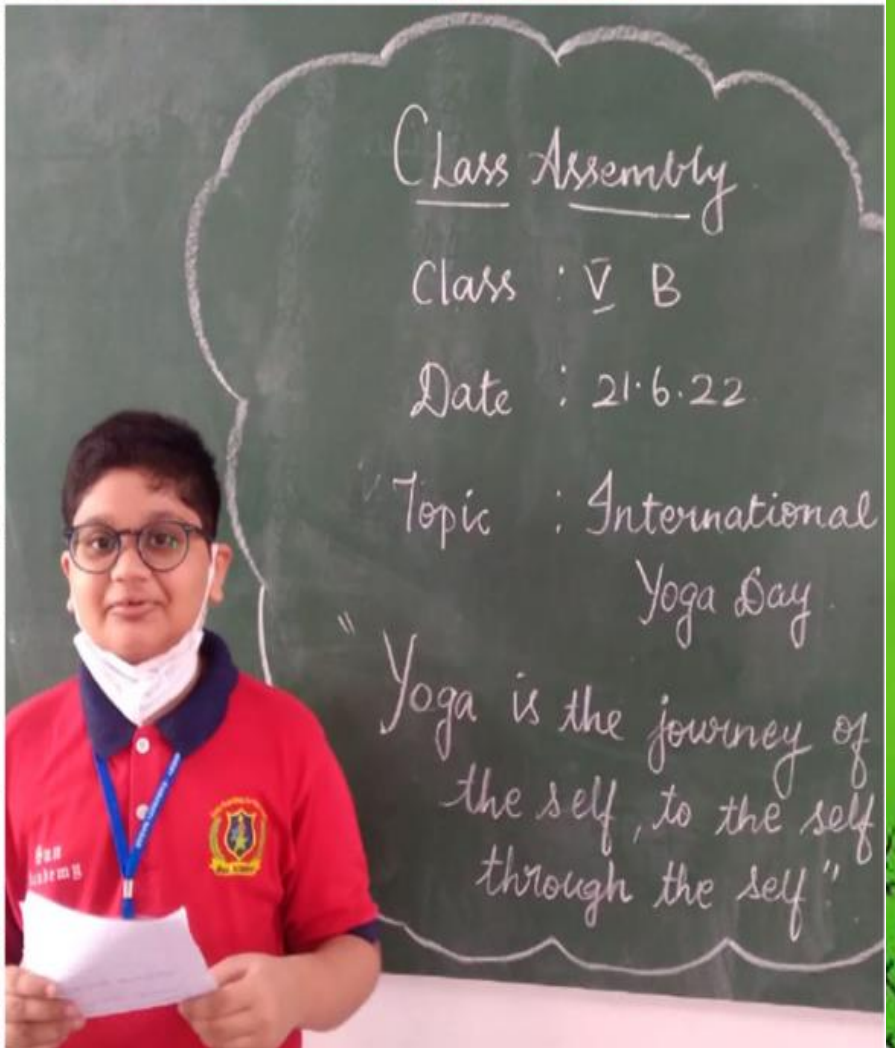 Class Assembly
Class : V B
Date : 21.6.22
Topic : International
Yoga Day.
"Yoga is the journey of
the self, to the self
through the self"
Academy